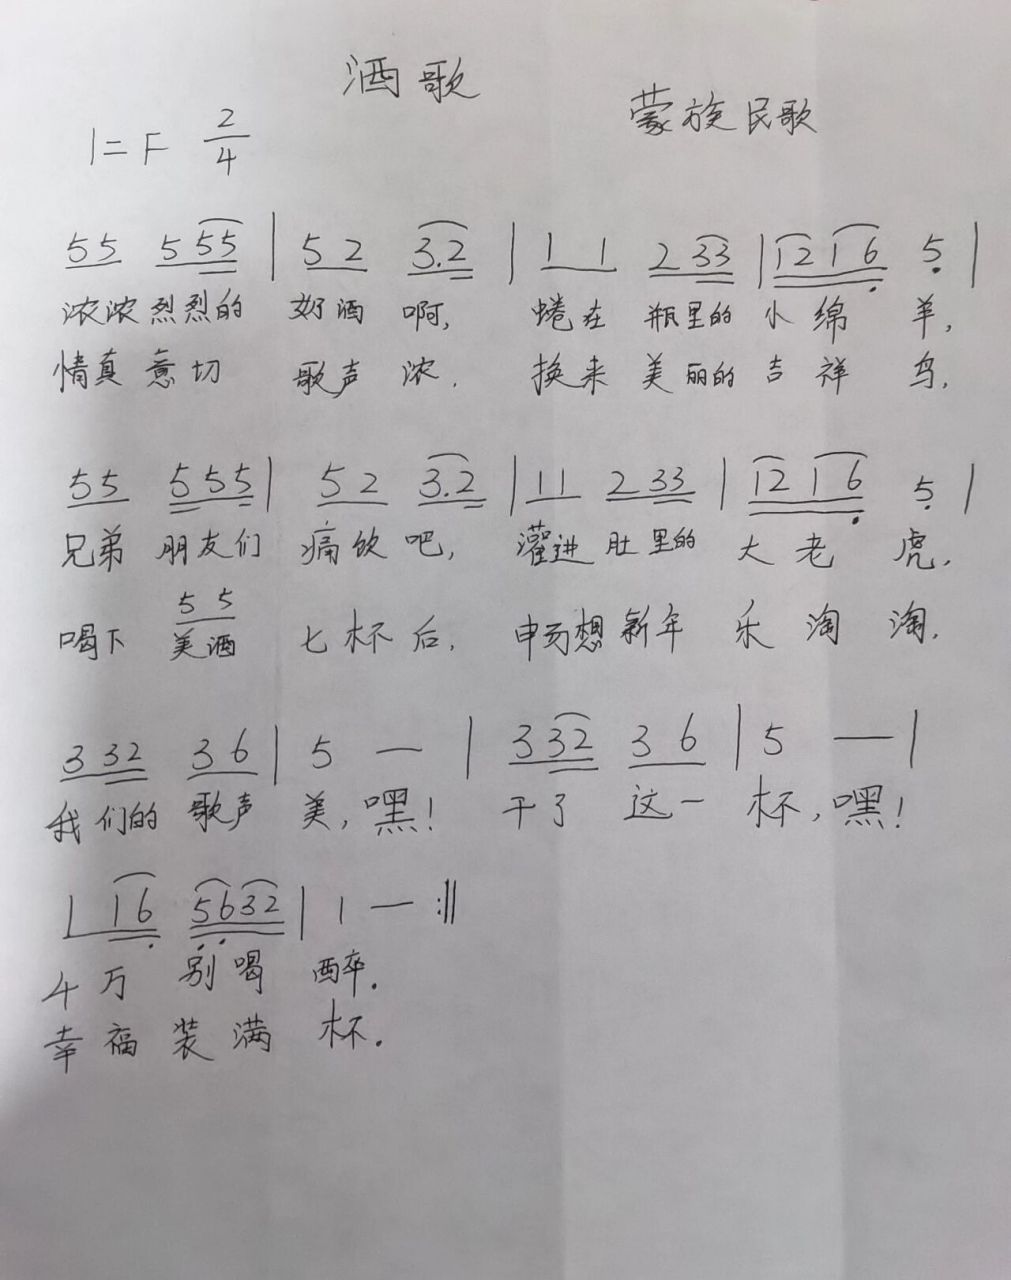 酒歌
蒙族民歌
1=F 2/4
55 555 | 52 3.2 | 11 233 | 1216 5 |
浓浓烈烈的 奶酒 啊, 蜷在 瓶里的 小绵 羊,
情真意切 歌声 浓. 换来 美丽的 吉祥 鸟,
55 555 | 52 3.2 | 11 233 | 1216 5 |
兄弟 朋友们 痛饮 吧, 灌进 肚里的 大老 虎,
55
喝下 美酒 七杯 后, 畅想新年 乐淘 淘.
332 36 | 5 — | 332 36 | 5 — |
我们的 歌声 美,嘿! 干了 这一 杯,嘿!
1 16 5632 | 1 — :||
千万 别喝 醉.
幸福装满 杯.